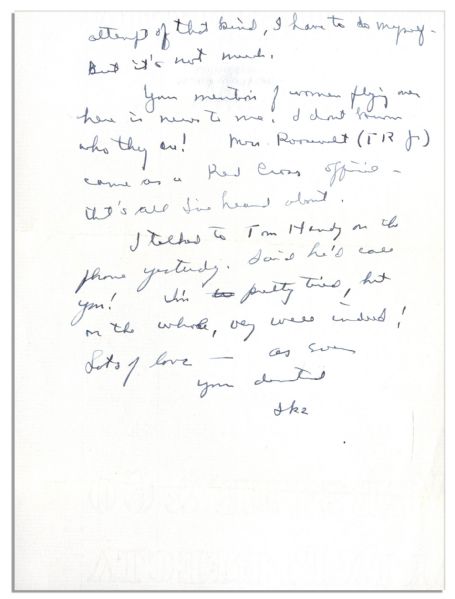 attempt of that kind, I have to do myself -
But it's not much.
Your mention of women flying over
here is news to me! I don't know
who they are! Mrs. Roosevelt (TR Jr)
came as a Red Cross official -
that's all I've heard about.
I talked to Tom Handy on the
phone yesterday. Said he'd call
you! I'm pretty tired, but
on the whole, very well indeed!
Lots of love — as ever
your devoted
Ike